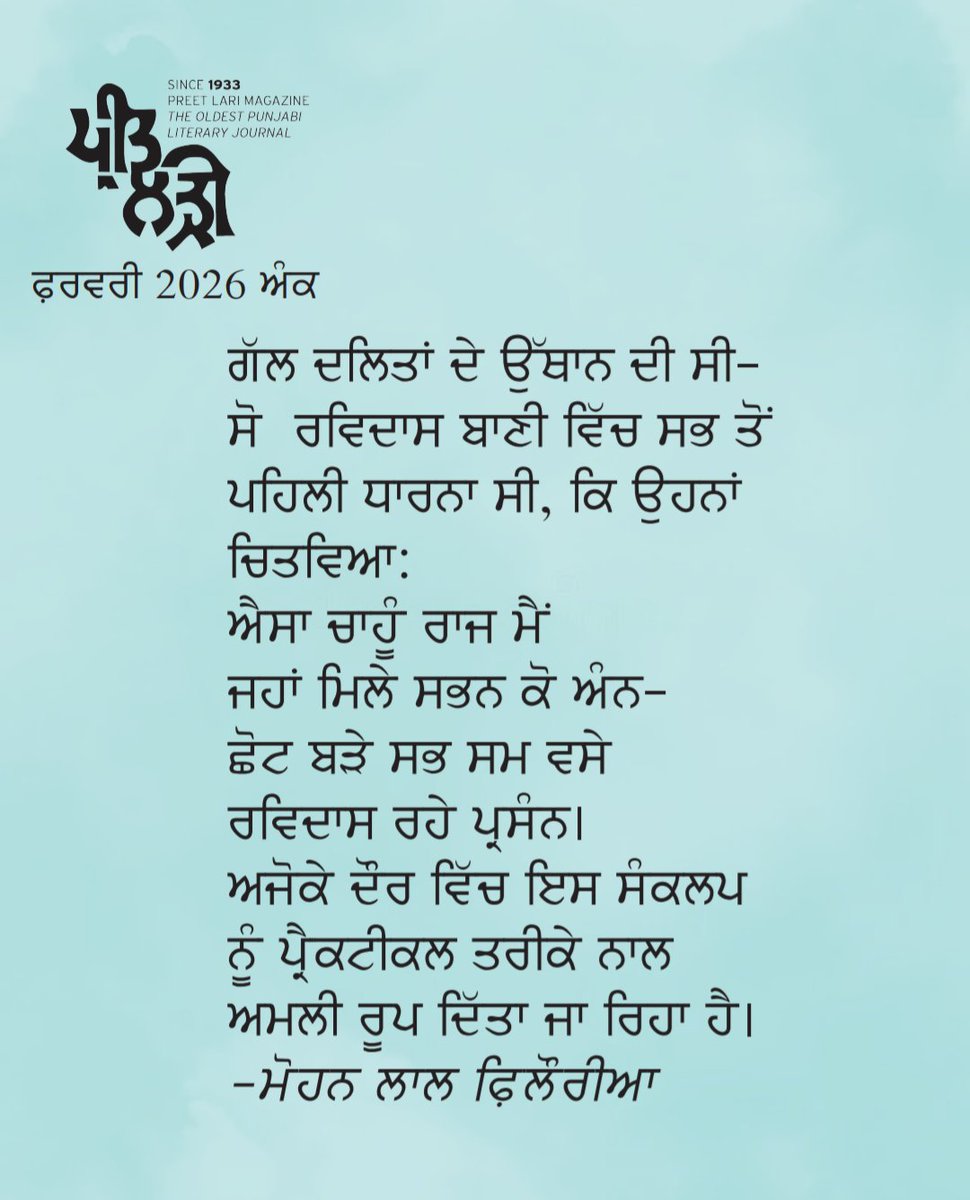 SINCE 1933
PREET LARI MAGAZINE
THE OLDEST PUNJABI
LITERARY JOURNAL
ਪ੍ਰੀਤ
ਲੜੀ
ਫ਼ਰਵਰੀ 2026 ਅੰਕ
ਗੱਲ ਦਲਿਤਾਂ ਦੇ ਉੱਥਾਨ ਦੀ ਸੀ–
ਸੋ  ਰਵਿਦਾਸ ਬਾਣੀ ਵਿੱਚ ਸਭ ਤੋਂ
ਪਹਿਲੀ ਧਾਰਨਾ ਸੀ, ਕਿ ਉਹਨਾਂ
ਚਿਤਵਿਆ:
ਐਸਾ ਚਾਹੂੰ ਰਾਜ ਮੈਂ
ਜਹਾਂ ਮਿਲੇ ਸਭਨ ਕੋ ਅੰਨ–
ਛੋਟ ਬੜੇ ਸਭ ਸਮ ਵਸੇ
ਰਵਿਦਾਸ ਰਹੇ ਪ੍ਰਸੰਨ।
ਅਜੋਕੇ ਦੌਰ ਵਿੱਚ ਇਸ ਸੰਕਲਪ
ਨੂੰ ਪ੍ਰੈਕਟੀਕਲ ਤਰੀਕੇ ਨਾਲ
ਅਮਲੀ ਰੂਪ ਦਿੱਤਾ ਜਾ ਰਿਹਾ ਹੈ।
–ਮੋਹਨ ਲਾਲ ਫ਼ਿਲੌਰੀਆ